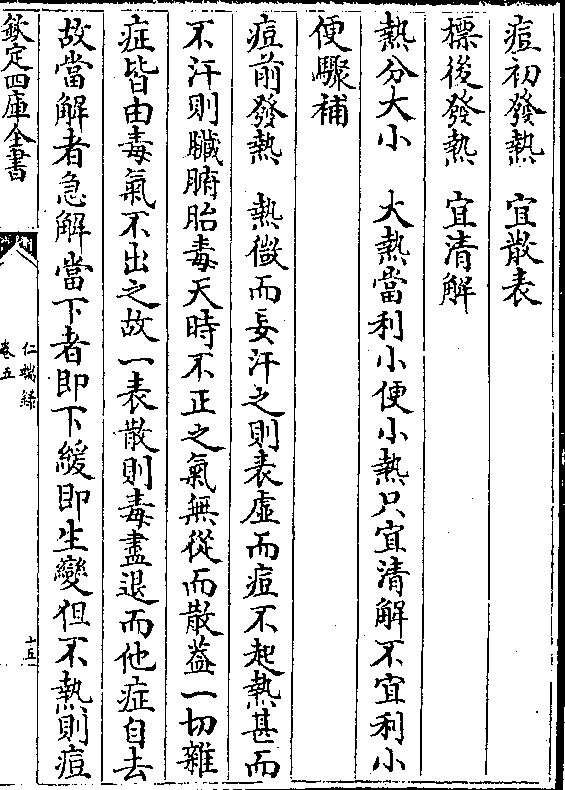 痘初發熱　宜散表
標後發熱　宜清解
熱分大小　大熱當利小便小熱只宜清解不宜利小
便驟補
痘前發熱　熱微而妄汗之則表虚而痘不起熱甚而
不汗則臟腑胎毒天時不正之氣無從而散葢一切雜
症皆由毒氣不出之故一表散則毒盡退而他症自去
故當解者急解當下者即下緩即生變但不熱則痘
欽定四庫全書
仁端録
卷五
十五